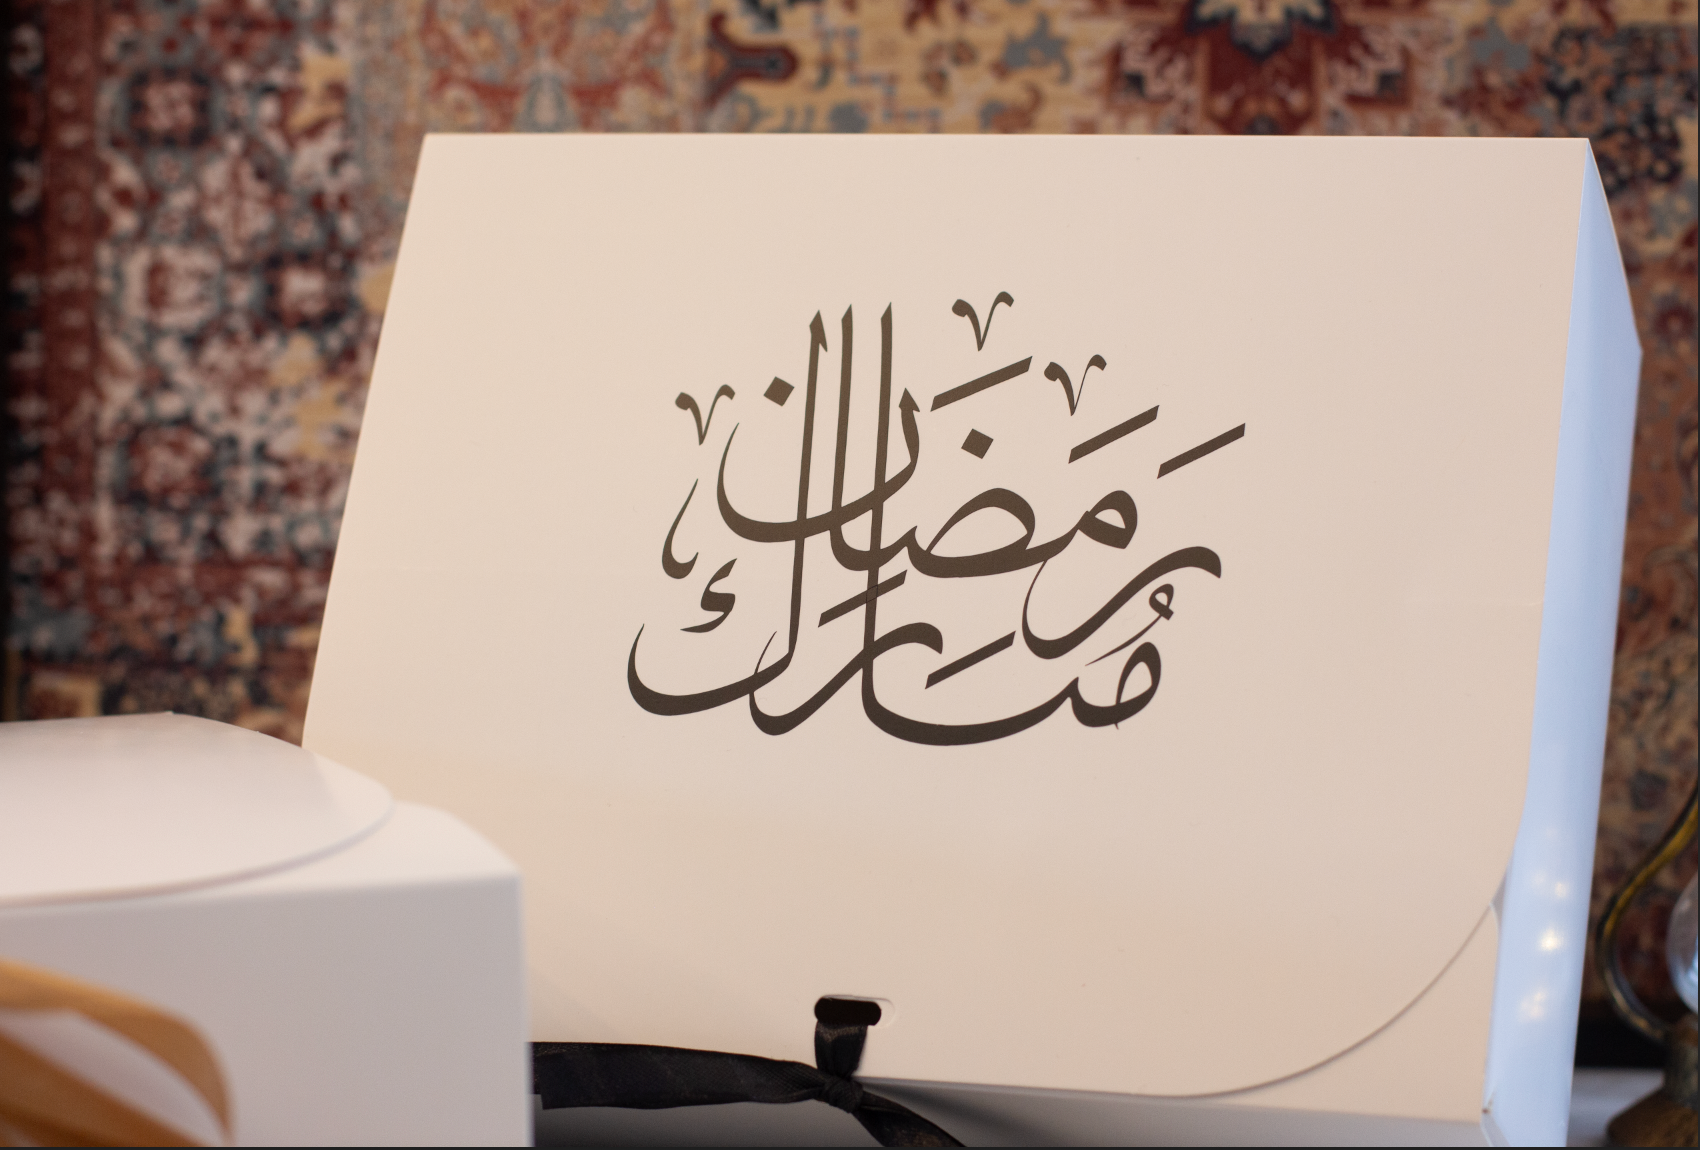 رَمَضَان
مُبَارَك